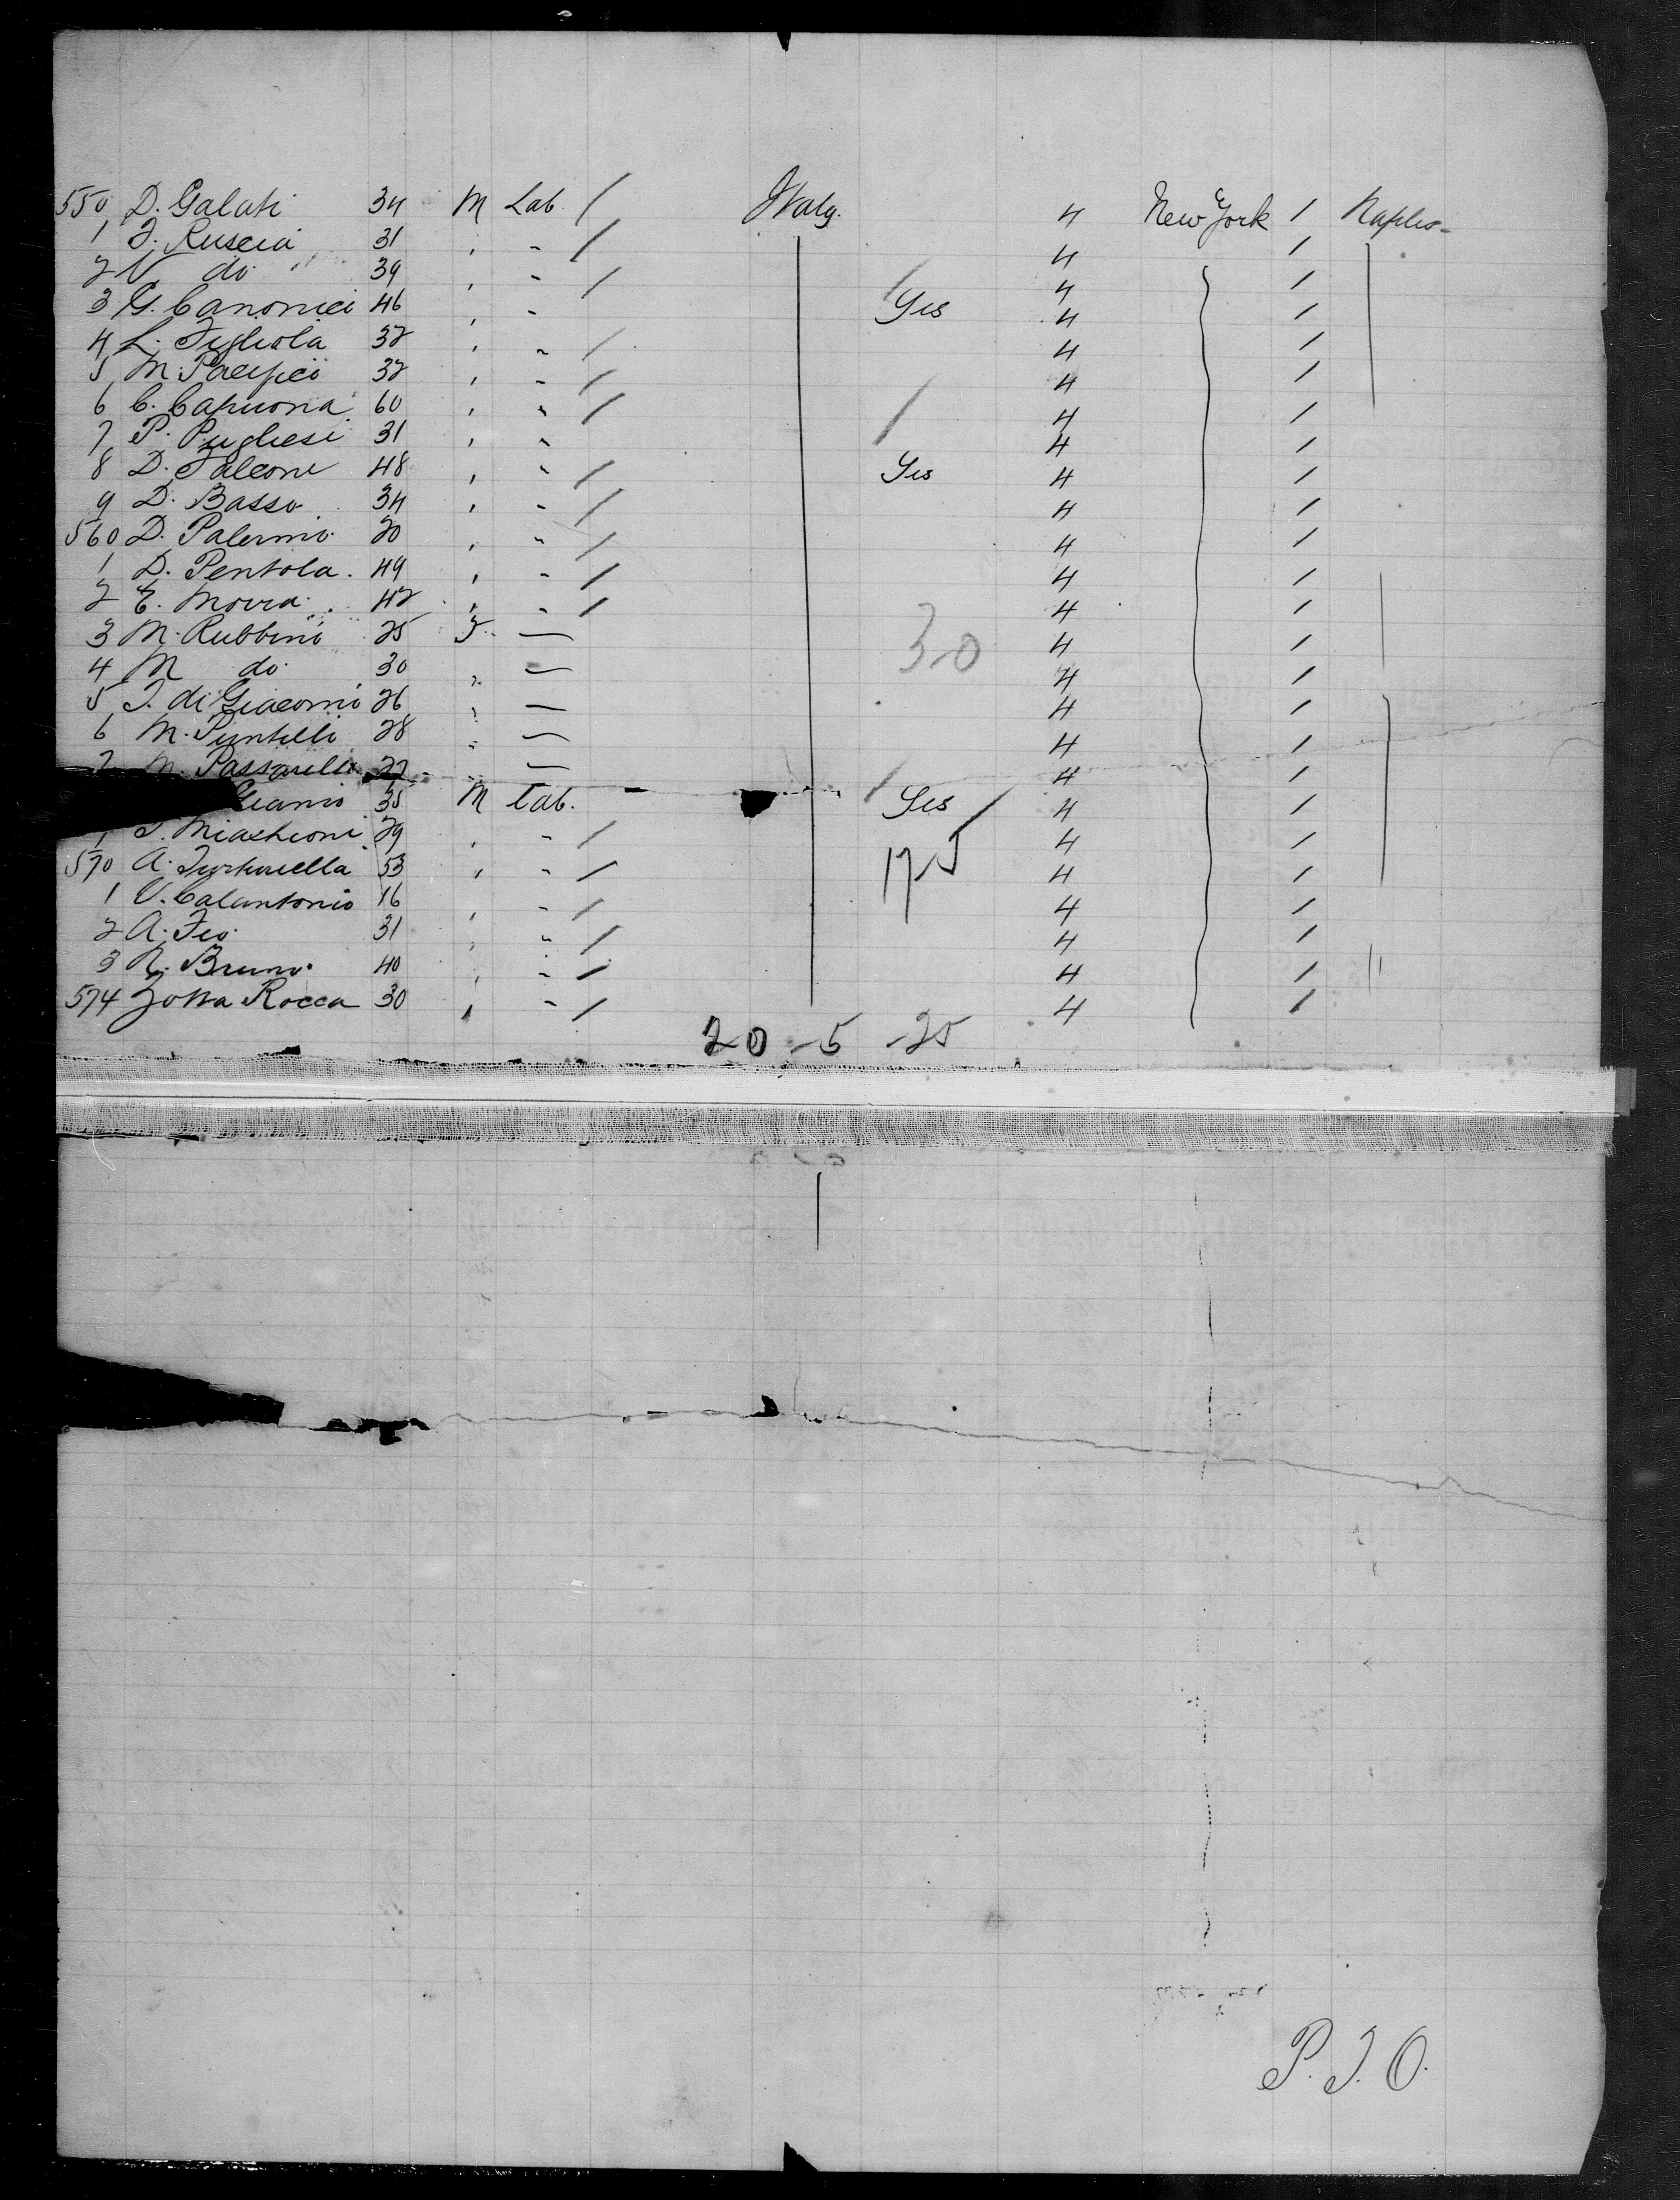 550 D. Galati 34 M Lab. / Italy. 4 New York / Naples
1 F. Ruscia 31 , " / 4 /
2 V. do 39 , " / 4 /
3 G. Canonici 46 , " / Yes 4 /
4 L. Figliola 32 , " / 4 /
5 M. Pacifici 32 , " / 4 /
6 C. Capuona 60 , " / 4 /
7 P. Pugliesi 31 , " / 4 /
8 D. Falcone 48 , " / Yes 4 /
9 D. Basso 34 , " / 4 /
560 D. Palermo 20 , " / 4 /
1 D. Pentola. 49 , " / 4 /
2 E. Morra 42 , " / 4 /
3 M. Rubbino 25 F. — 30 4 /
4 M do 30 " — 4 /
5 F. di Giacomo 26 " — 4 /
6 M. Puntilli 28 " — 4 /
7 M. Passarelli 22 " — 4 /
Gianio 35 M Lab. / Yes / 4 /
29 , " / 4 /
570 A. 53 , " / 175 4 /
1 V. Calantonio 16 , " / 4 /
2 A. Feo. 31 , " / 4 /
3 N. Bruno. 40 , " / 4 /
574 Zotta Rocca 30 , " / 4 /
20 - 5 - 25
P. T. O.